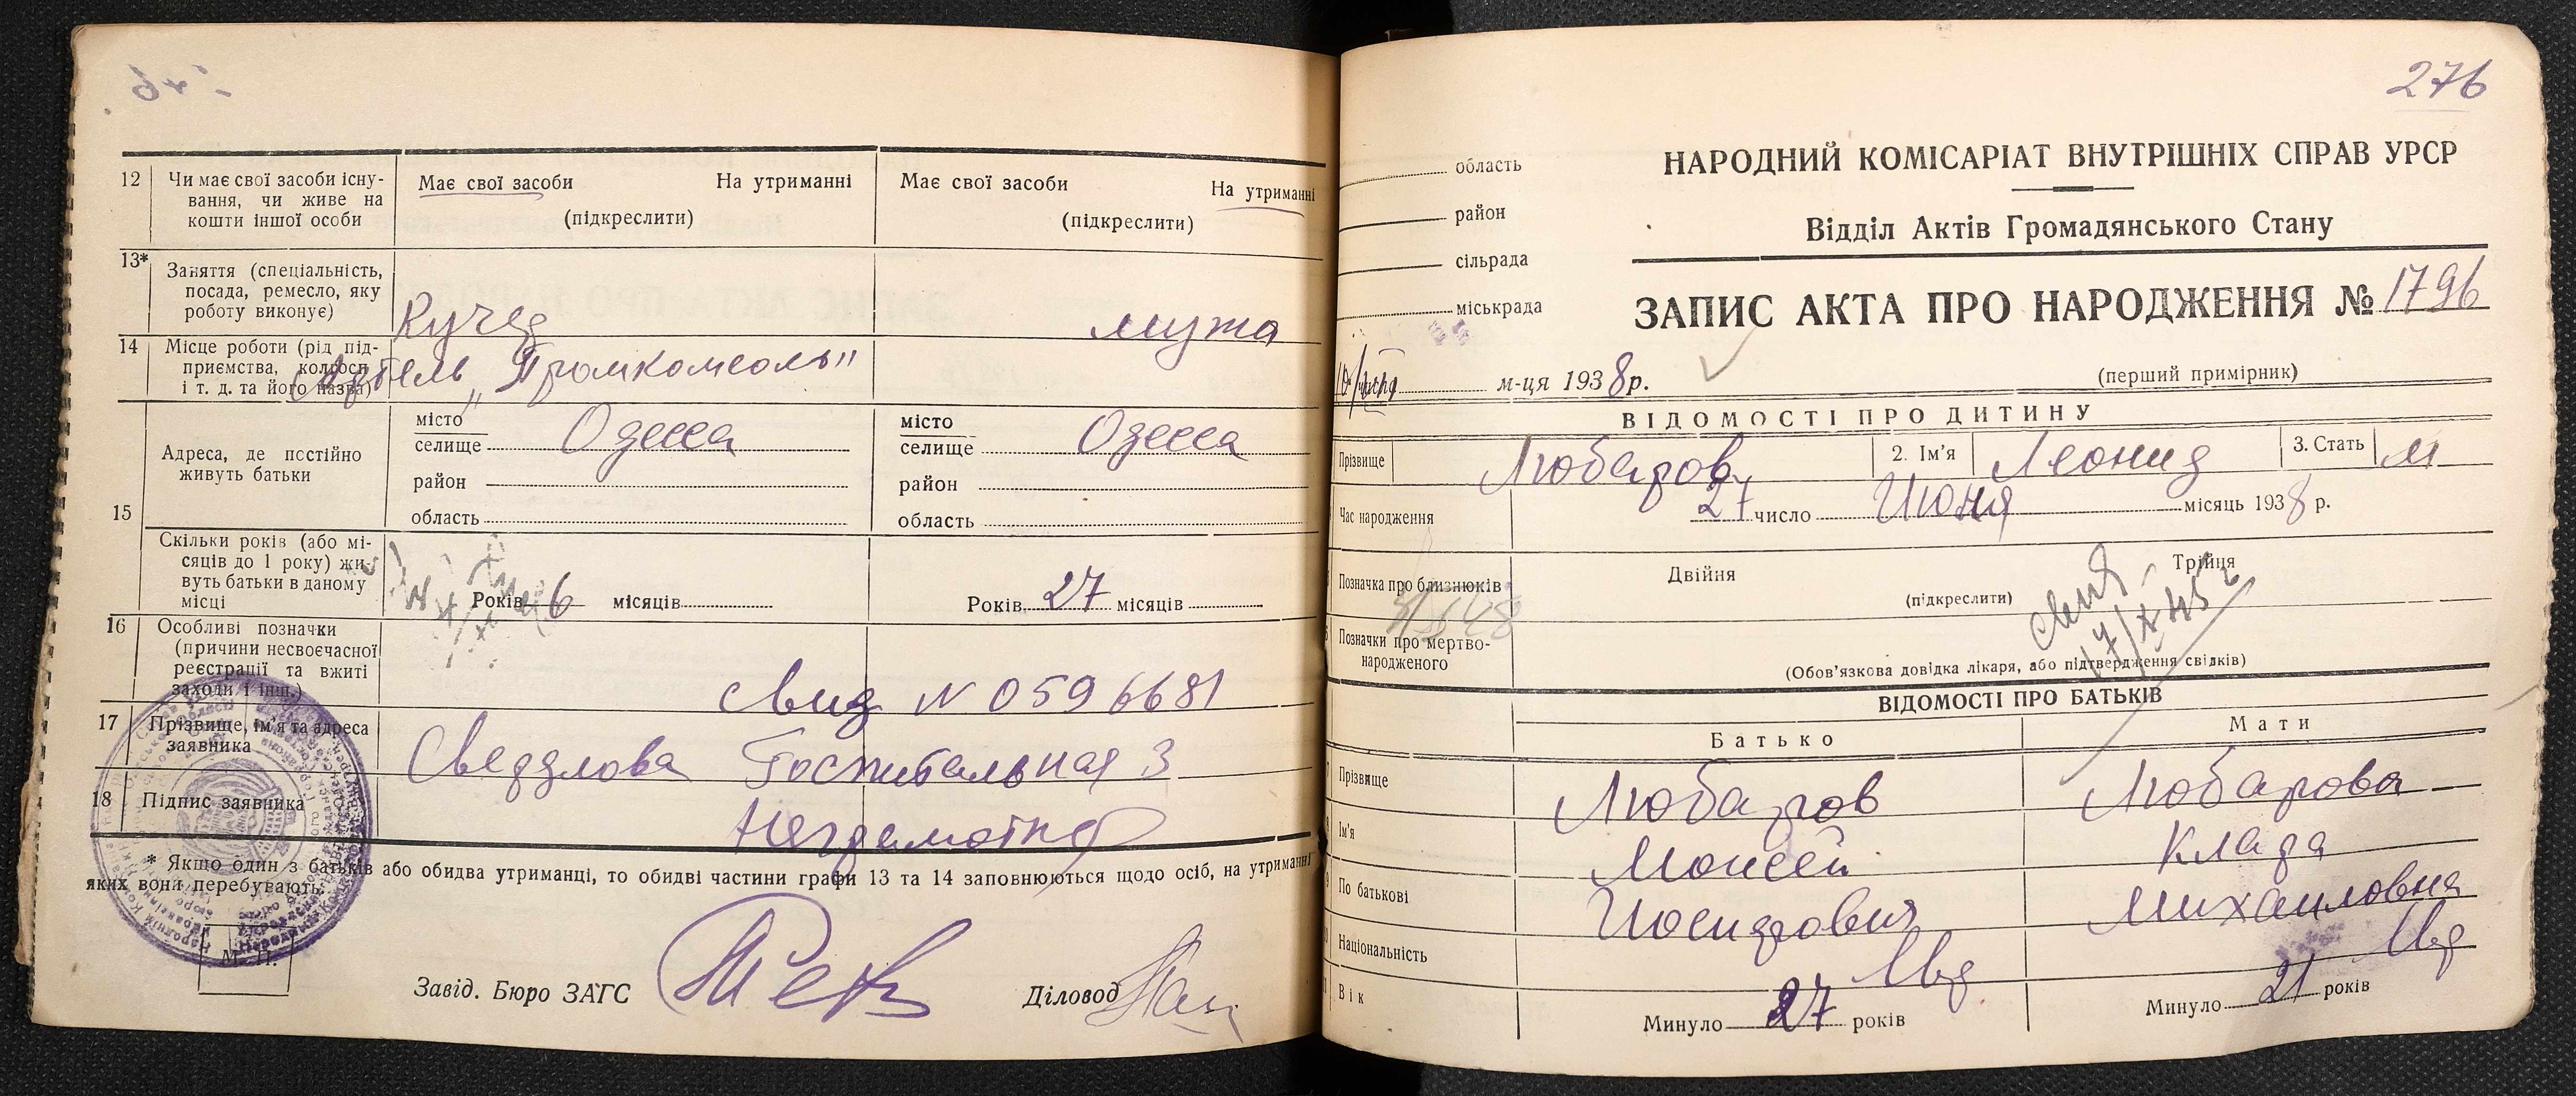 12 Чи має свої засоби існу-
вання, чи живе на
кошти іншої особи
Має свої засоби На утриманні
(підкреслити)
Має свої засоби На утриманні
(підкреслити)
13* Заняття (спеціальність,
посада, ремесло, яку
роботу виконує)
Кучер
мужа
14 Місце роботи (рід під-
приємства, колгосп
і т. д. та його назва)
Артель „Промкомсоль"
15 Адреса, де постійно
живуть батьки
місто
селище Одесса
район
область
місто
селище Одесса
район
область
Скільки років (або мі-
сяців до 1 року) жи-
вуть батьки в даному
місці
Років 6 місяців
Років 27 місяців
16 Особливі позначки
(причини несвоєчасної
реєстрації та вжиті
заходи і інш.)
Свид N 0596681
17 Прізвище, ім'я та адреса
заявника
Свердлова Госпитальная 3
18 Підпис заявника
Неграмотна
* Якщо один з батьків або обидва утриманці, то обидві частини графи 13 та 14 заповнюються щодо осіб, на утриманні
яких вони перебувають.
М. П.
Завід. Бюро ЗАГС
Діловод
276
область
район
сільрада
міськрада
НАРОДНИЙ КОМІСАРІАТ ВНУТРІШНІХ СПРАВ УРСР
Відділ Актів Громадянського Стану
ЗАПИС АКТА ПРО НАРОДЖЕННЯ № 1796
м-ця 1938 р.
(перший примірник)
ВІДОМОСТІ ПРО ДИТИНУ
Прізвище Любаров 2. Ім'я Леонид 3. Стать м
Час народження 27 число Июня місяць 1938 р.
Позначка про близнюків Двійня Трійня
(підкреслити)
Позначки про мертво-
народженого
(Обов'язкова довідка лікаря, або підтвердження свідків)
ВІДОМОСТІ ПРО БАТЬКІВ
Батько Мати
Прізвище Любаров Любарова
Ім'я Моисей Клара
По батькові Иосифович Михаиловна
Національність
Вік Минуло 27 років Минуло 21 років